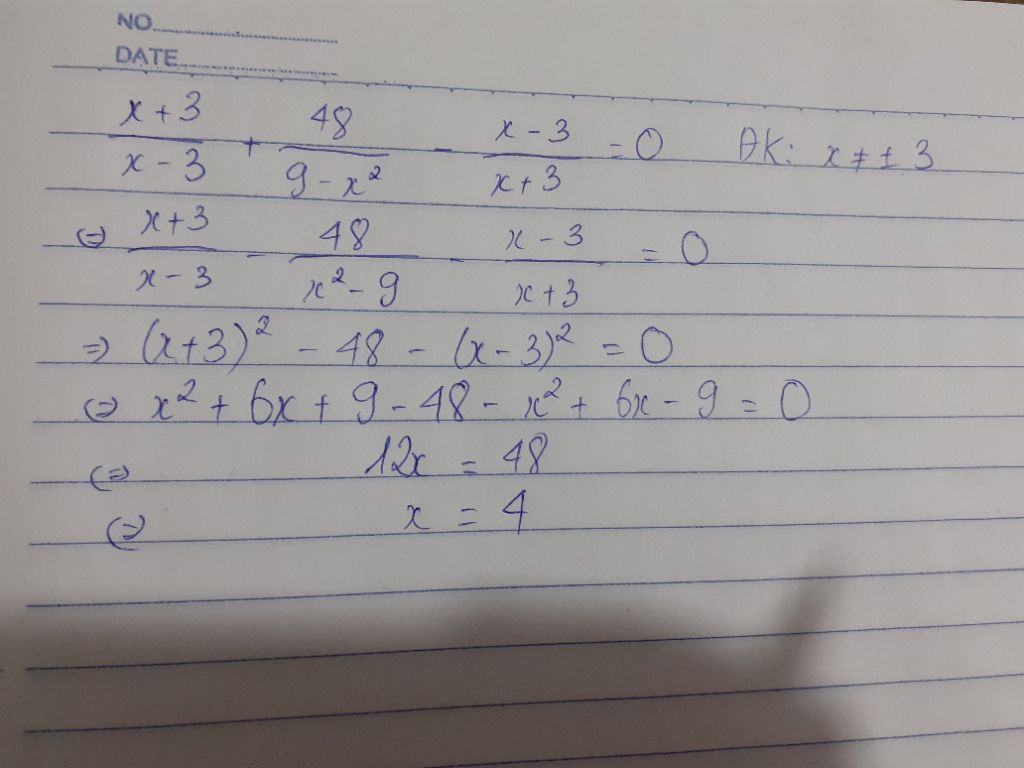 NO
DATE
x + 3 / x - 3 + 48 / 9 - x² - x - 3 / x + 3 = 0 ĐK: x ≠ ± 3
⇔ x + 3 / x - 3 - 48 / x² - 9 - x - 3 / x + 3 = 0
⇒ (x + 3)² - 48 - (x - 3)² = 0
⇔ x² + 6x + 9 - 48 - x² + 6x - 9 = 0
⇔ 12x = 48
⇔ x = 4